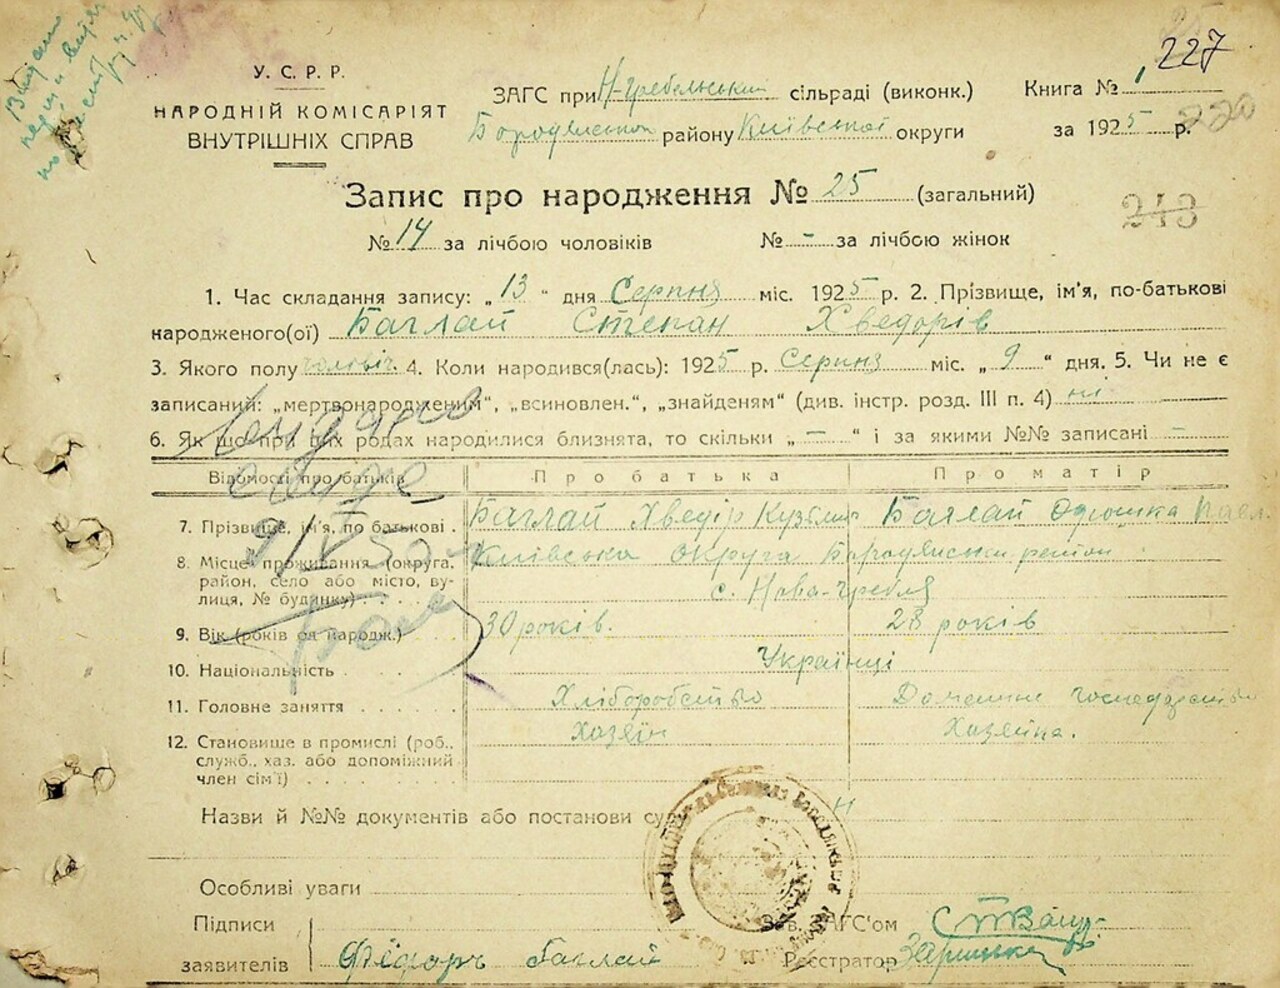 227
У. С. Р. Р.
НАРОДНІЙ КОМІСАРІЯТ
ВНУТРІШНІХ СПРАВ
ЗАГС при Н-Гребельський сільраді (виконк.)
Бородянском району Київської округи
Книга № 1
за 1925 р.
220
Запис про народження № 25 (загальний)
243
№ 14 за лічбою чоловіків № - за лічбою жінок
1. Час складання запису: „ 13 “ дня Серпня міс. 1925 р. 2. Прізвище, ім'я, по-батькові
народженого(ої) Баглай Степан Хведорів
3. Якого полу чоловіч. 4. Коли народився(лась): 1925 р. Серпня міс. „ 9 “ дня. 5. Чи не є
записаний: „мертвонародженим“, „всиновлен.“, „знайденям“ (див. інстр. розд. III п. 4) ні
6. Як що при цих родах народилися близнята, то скільки „ — “ і за якими №№ записані —
Відомості про батьків Про батька Про матір
7. Прізвище, ім'я, по батькові . Баглай Хведір Кузьмич Баглай Одюшка Павл.
8. Місце проживання (округа, Київська округа Бородянський район
район, село або місто, ву- с. Нова-Гребля
лиця, № будинку)
9. Вік (років од народж.) 30 років. 28 років
10. Національність Українці
11. Головне заняття Хліборобство Домашне господарство
12. Становище в промислі (роб., Хазяїн Хазяйка.
служб., хаз. або допоміжний
член сім'ї)
Назви й №№ документів або постанови суду
Особливі уваги
Підписи
заявителів Фёдоръ Баглай
Зав. ЗАГС'ом
Реєстратор